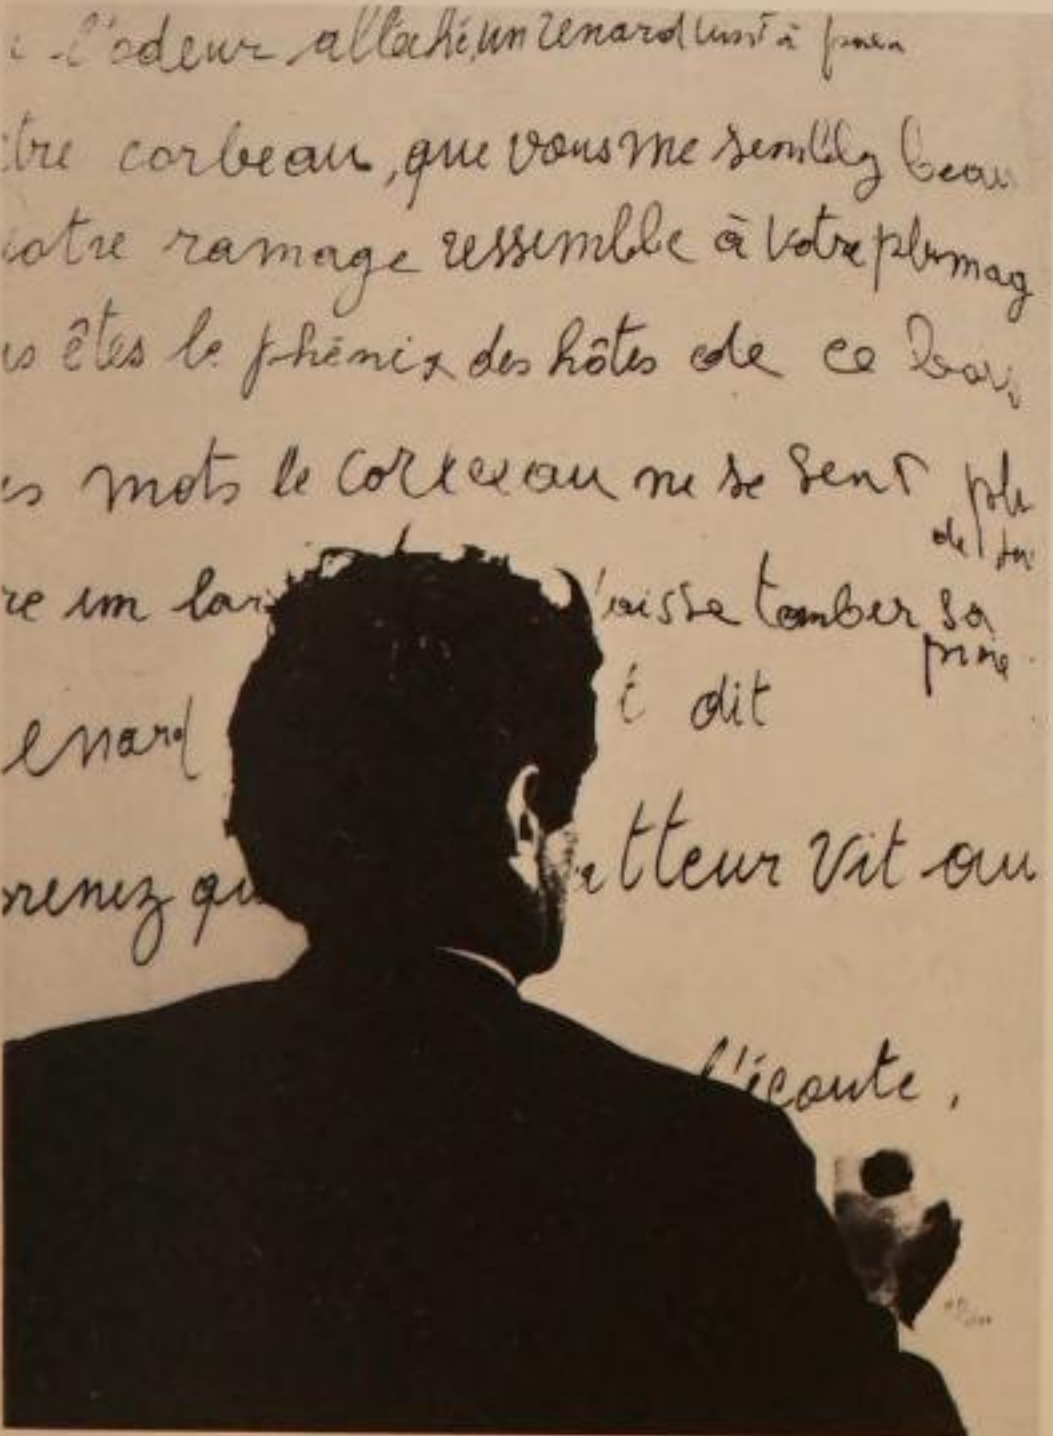 l'odeur alléché, un renard vint à
tre corbeau, que vous me semblez beau
votre ramage ressemble à votre plumag
us êtes le phénix des hôtes de ce bois
es mots le corbeau ne se sent
de
re un lar laisse tomber sa
enard t dit
renez qu tteur vit au
l'écoute,